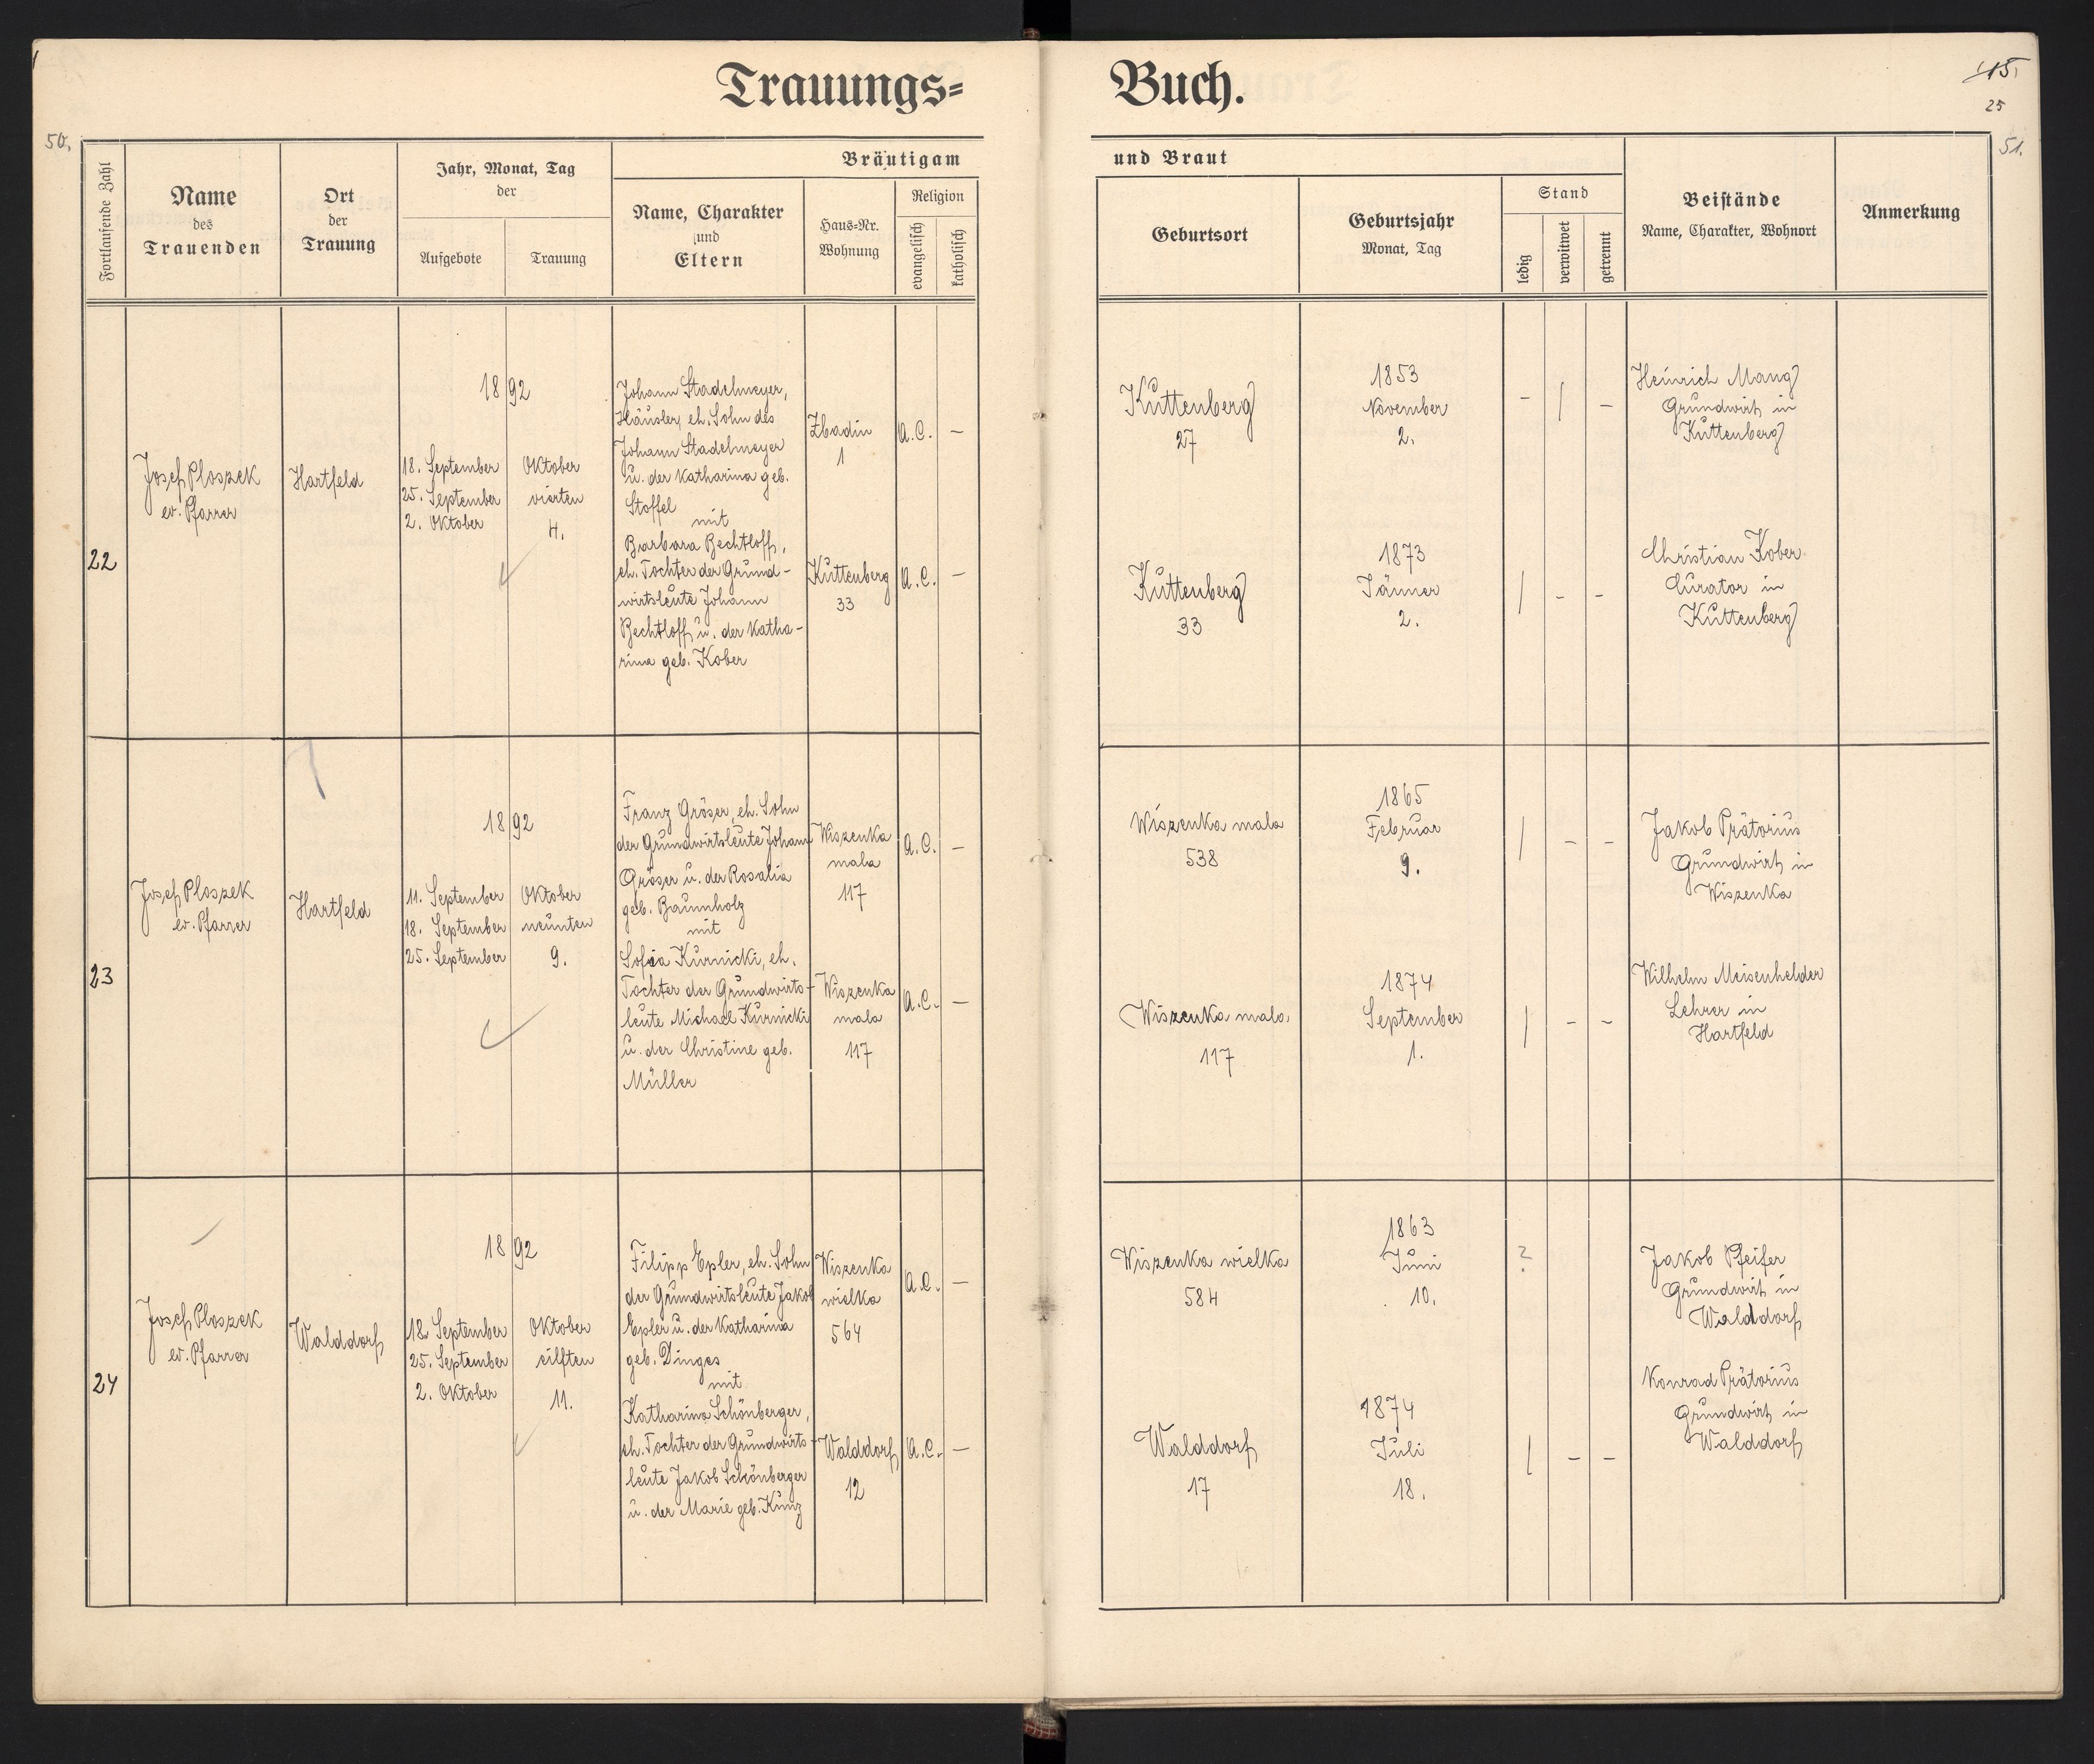 Trauungs=
Buch.
115.
25
50.
51.
Fortlaufende Zahl
Name
des
Trauenden
Ort
der
Trauung
Jahr, Monat, Tag
der
Aufgebote
Trauung
Bräutigam
Name, Charakter
und
Eltern
Haus-Nr.
Wohnung
Religion
evangelisch
katholisch
und Braut
Geburtsort
Geburtsjahr
Monat, Tag
Stand
ledig
verwitwet
getrennt
Beistände
Name, Charakter, Wohnort
Anmerkung
22
Josef Ploszek
ev. Pfarrer
Hartfeld
1892
18. September
25. September
2. Oktober
Oktober
vierten
4.
Johann Stadelmeyer,
Häusler, eh. Sohn des
Johann Stadelmeyer
u. der Katharina geb.
Stoffel
mit
Barbara Bechtloff,
eh. Tochter der Grund-
wirtsleute Johann
Bechtloff u. der Katha-
rina geb. Kober
Zbadin
1
A.C. –
Kuttenberg
33
A.C. –
Kuttenberg
27
1853
November
2.
– | –
Heinrich Mang
Grundwirt in
Kuttenberg
Kuttenberg
33
1873
Jänner
2.
| – –
Christian Kober
Curator in
Kuttenberg
23
Josef Ploszek
ev. Pfarrer
Hartfeld
1892
11. September
18. September
25. September
Oktober
neunten
9.
Franz Gröser, eh. Sohn
der Grundwirtsleute Johann
Gröser u. der Rosalia
geb. Baumholz
mit
Sofia Kurnicki, eh.
Tochter der Grundwirts-
leute Michael Kurnicki
u. der Christine geb.
Müller
Wiszenka
mala
117
A.C. –
Wiszenka
mala
117
A.C. –
Wiszenka mala
538
1865
Februar
9.
| – –
Jakob Prätorius
Grundwirt in
Wiszenka
Wiszenka mala
117
1874
September
1.
| – –
Wilhelm Meisenhelder
Lehrer in
Hartfeld
24
Josef Ploszek
ev. Pfarrer
Walddorf
1892
18. September
25. September
2. Oktober
Oktober
eilften
11.
Filipp Epler, eh. Sohn
der Grundwirtsleute Jakob
Epler u. der Katharina
geb. Dinges
mit
Katharina Schönberger,
eh. Tochter der Grundwirts-
leute Jakob Schönberger
u. der Marie geb. Kunz
Wiszenka
wielka
564
A.C. –
Walddorf
12
A.C. –
Wiszenka wielka
584
1863
Juni
10.
?
Jakob Pfeifer
Grundwirt in
Walddorf
Walddorf
17
1874
Juli
18.
| – –
Konrad Prätorius
Grundwirt in
Walddorf